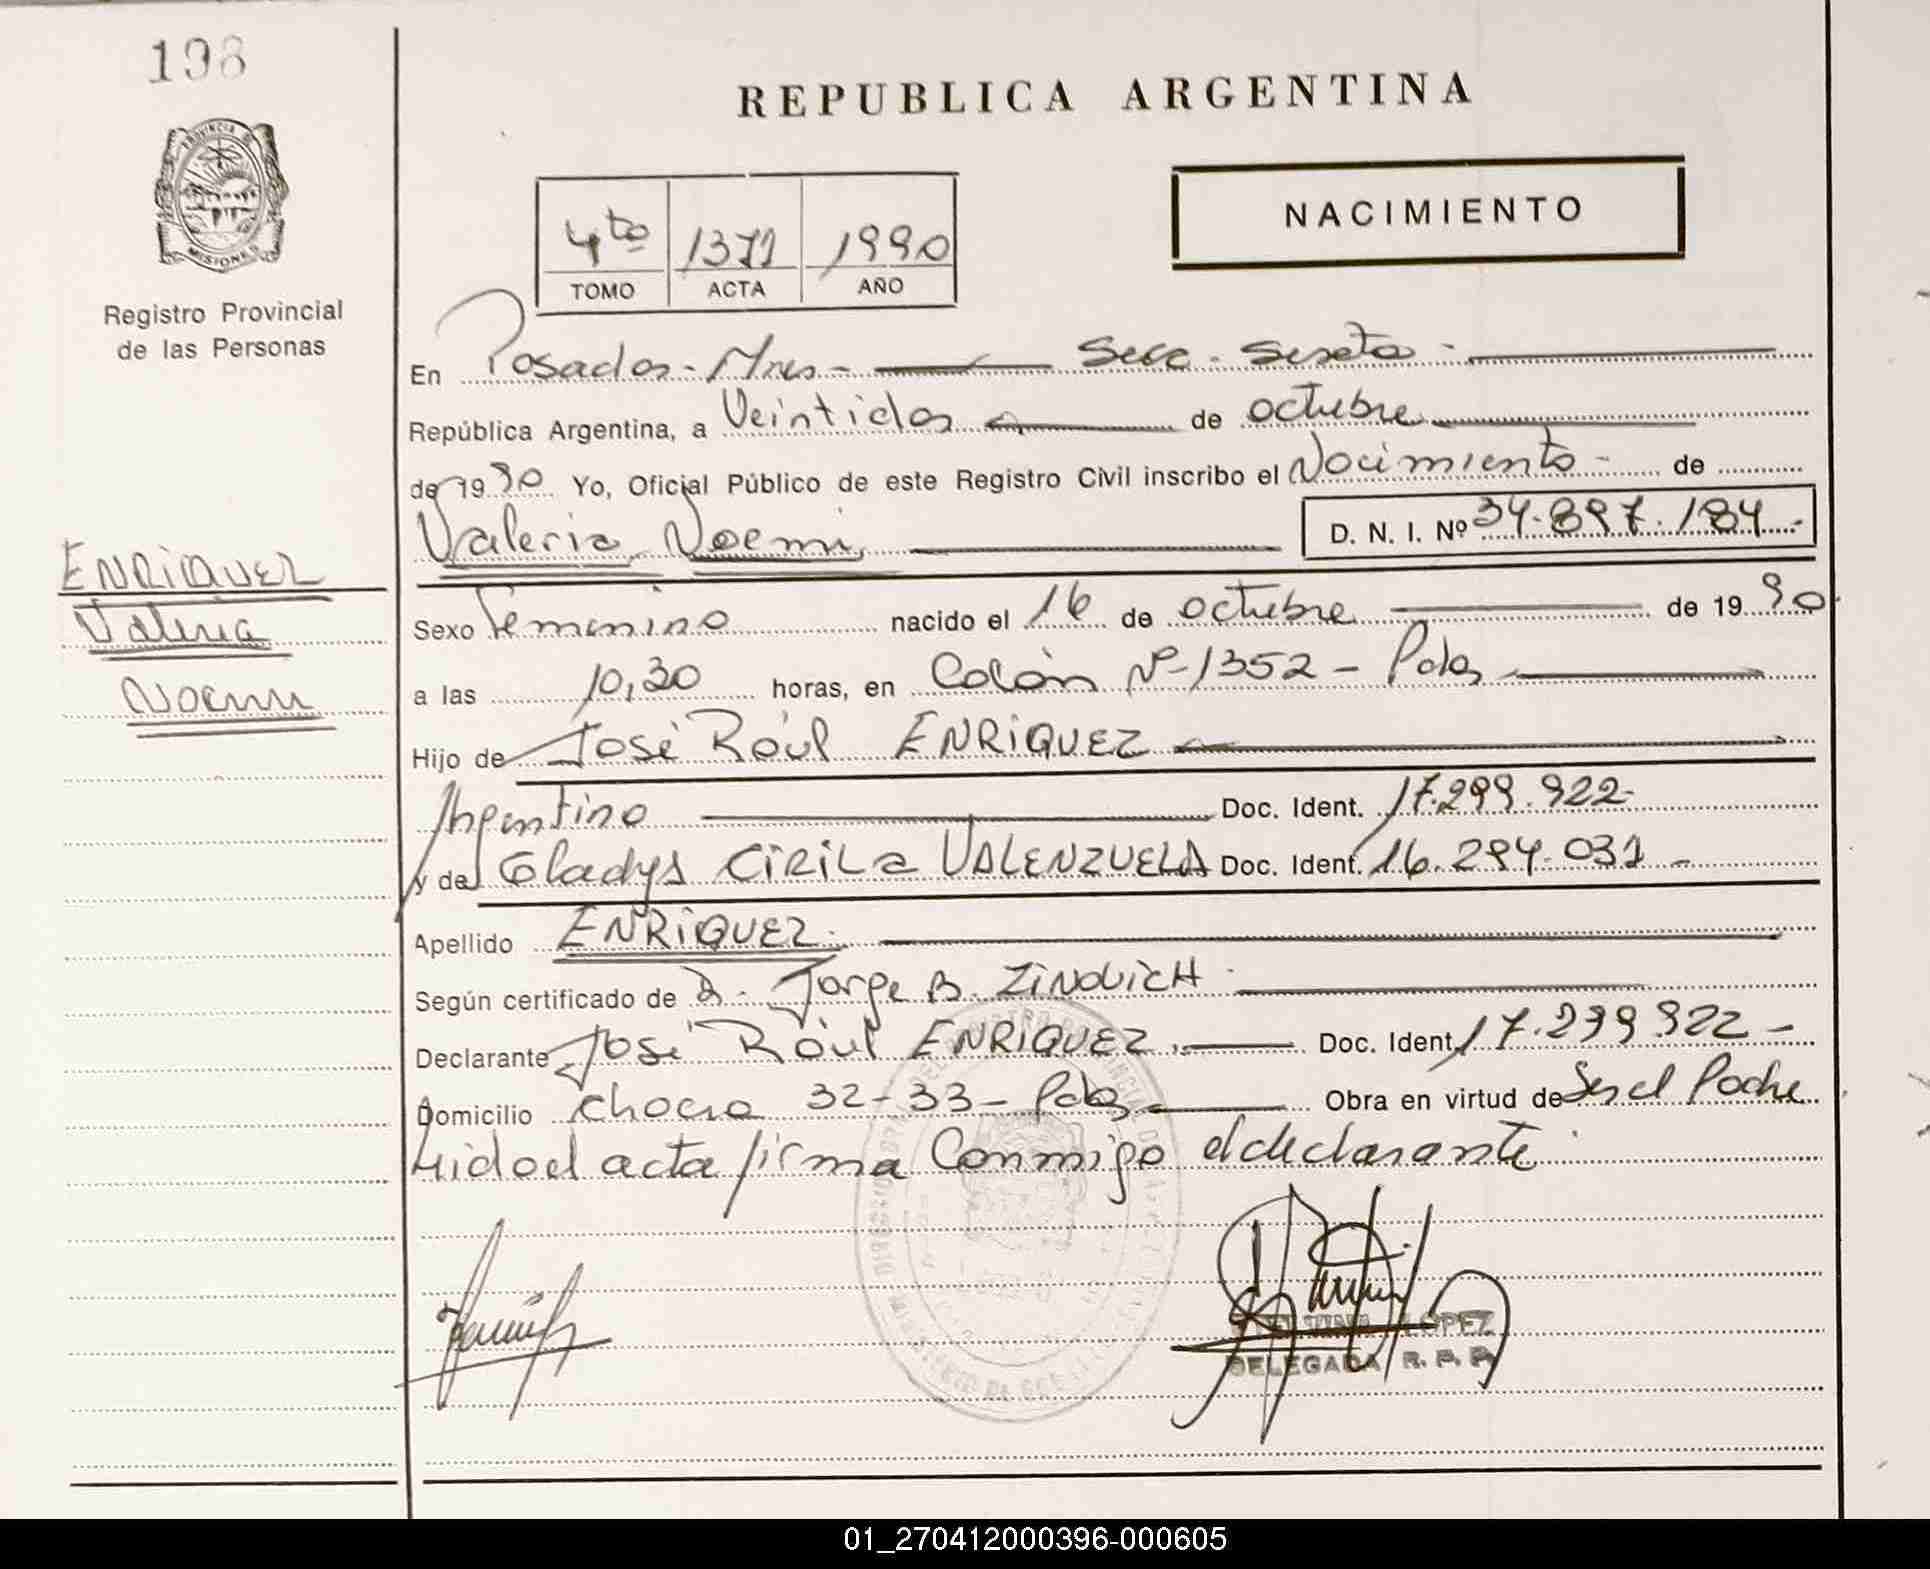 198
REPUBLICA ARGENTINA
PROVINCIA DE
MISIONES
Registro Provincial
de las Personas
NACIMIENTO
4to 1371 1990
TOMO ACTA AÑO
En Posadas - Mnes - Secc. Sexta -
República Argentina, a Veintidos de octubre
de 1990 Yo, Oficial Público de este Registro Civil inscribo el Nacimiento - de
Valeria Noemi, D. N. I. Nº 34.897.184.-
ENRIQUEZ
Valeria
Noemi
Sexo Femenino nacido el 16 de octubre de 1990.
a las 10,30 horas, en Colón Nº 1352 - Pdas
Hijo de José Raúl ENRIQUEZ
Argentino Doc. Ident. 17.299.922-
y de Gladys CIRILa VALENZUELA Doc. Ident. 16.294.031 -
Apellido ENRIQUEZ.
Según certificado de D. Jorge B. ZINOVICH -
Declarante José Raúl ENRIQUEZ. Doc. Ident. 17.299.922 -
Domicilio chacra 32-33 - Pdas Obra en virtud de Ser el Padre
Leida el acta firma Conmigo el declarante.
LOPEZ
DELEGADA R. P. P.
01_270412000396-000605